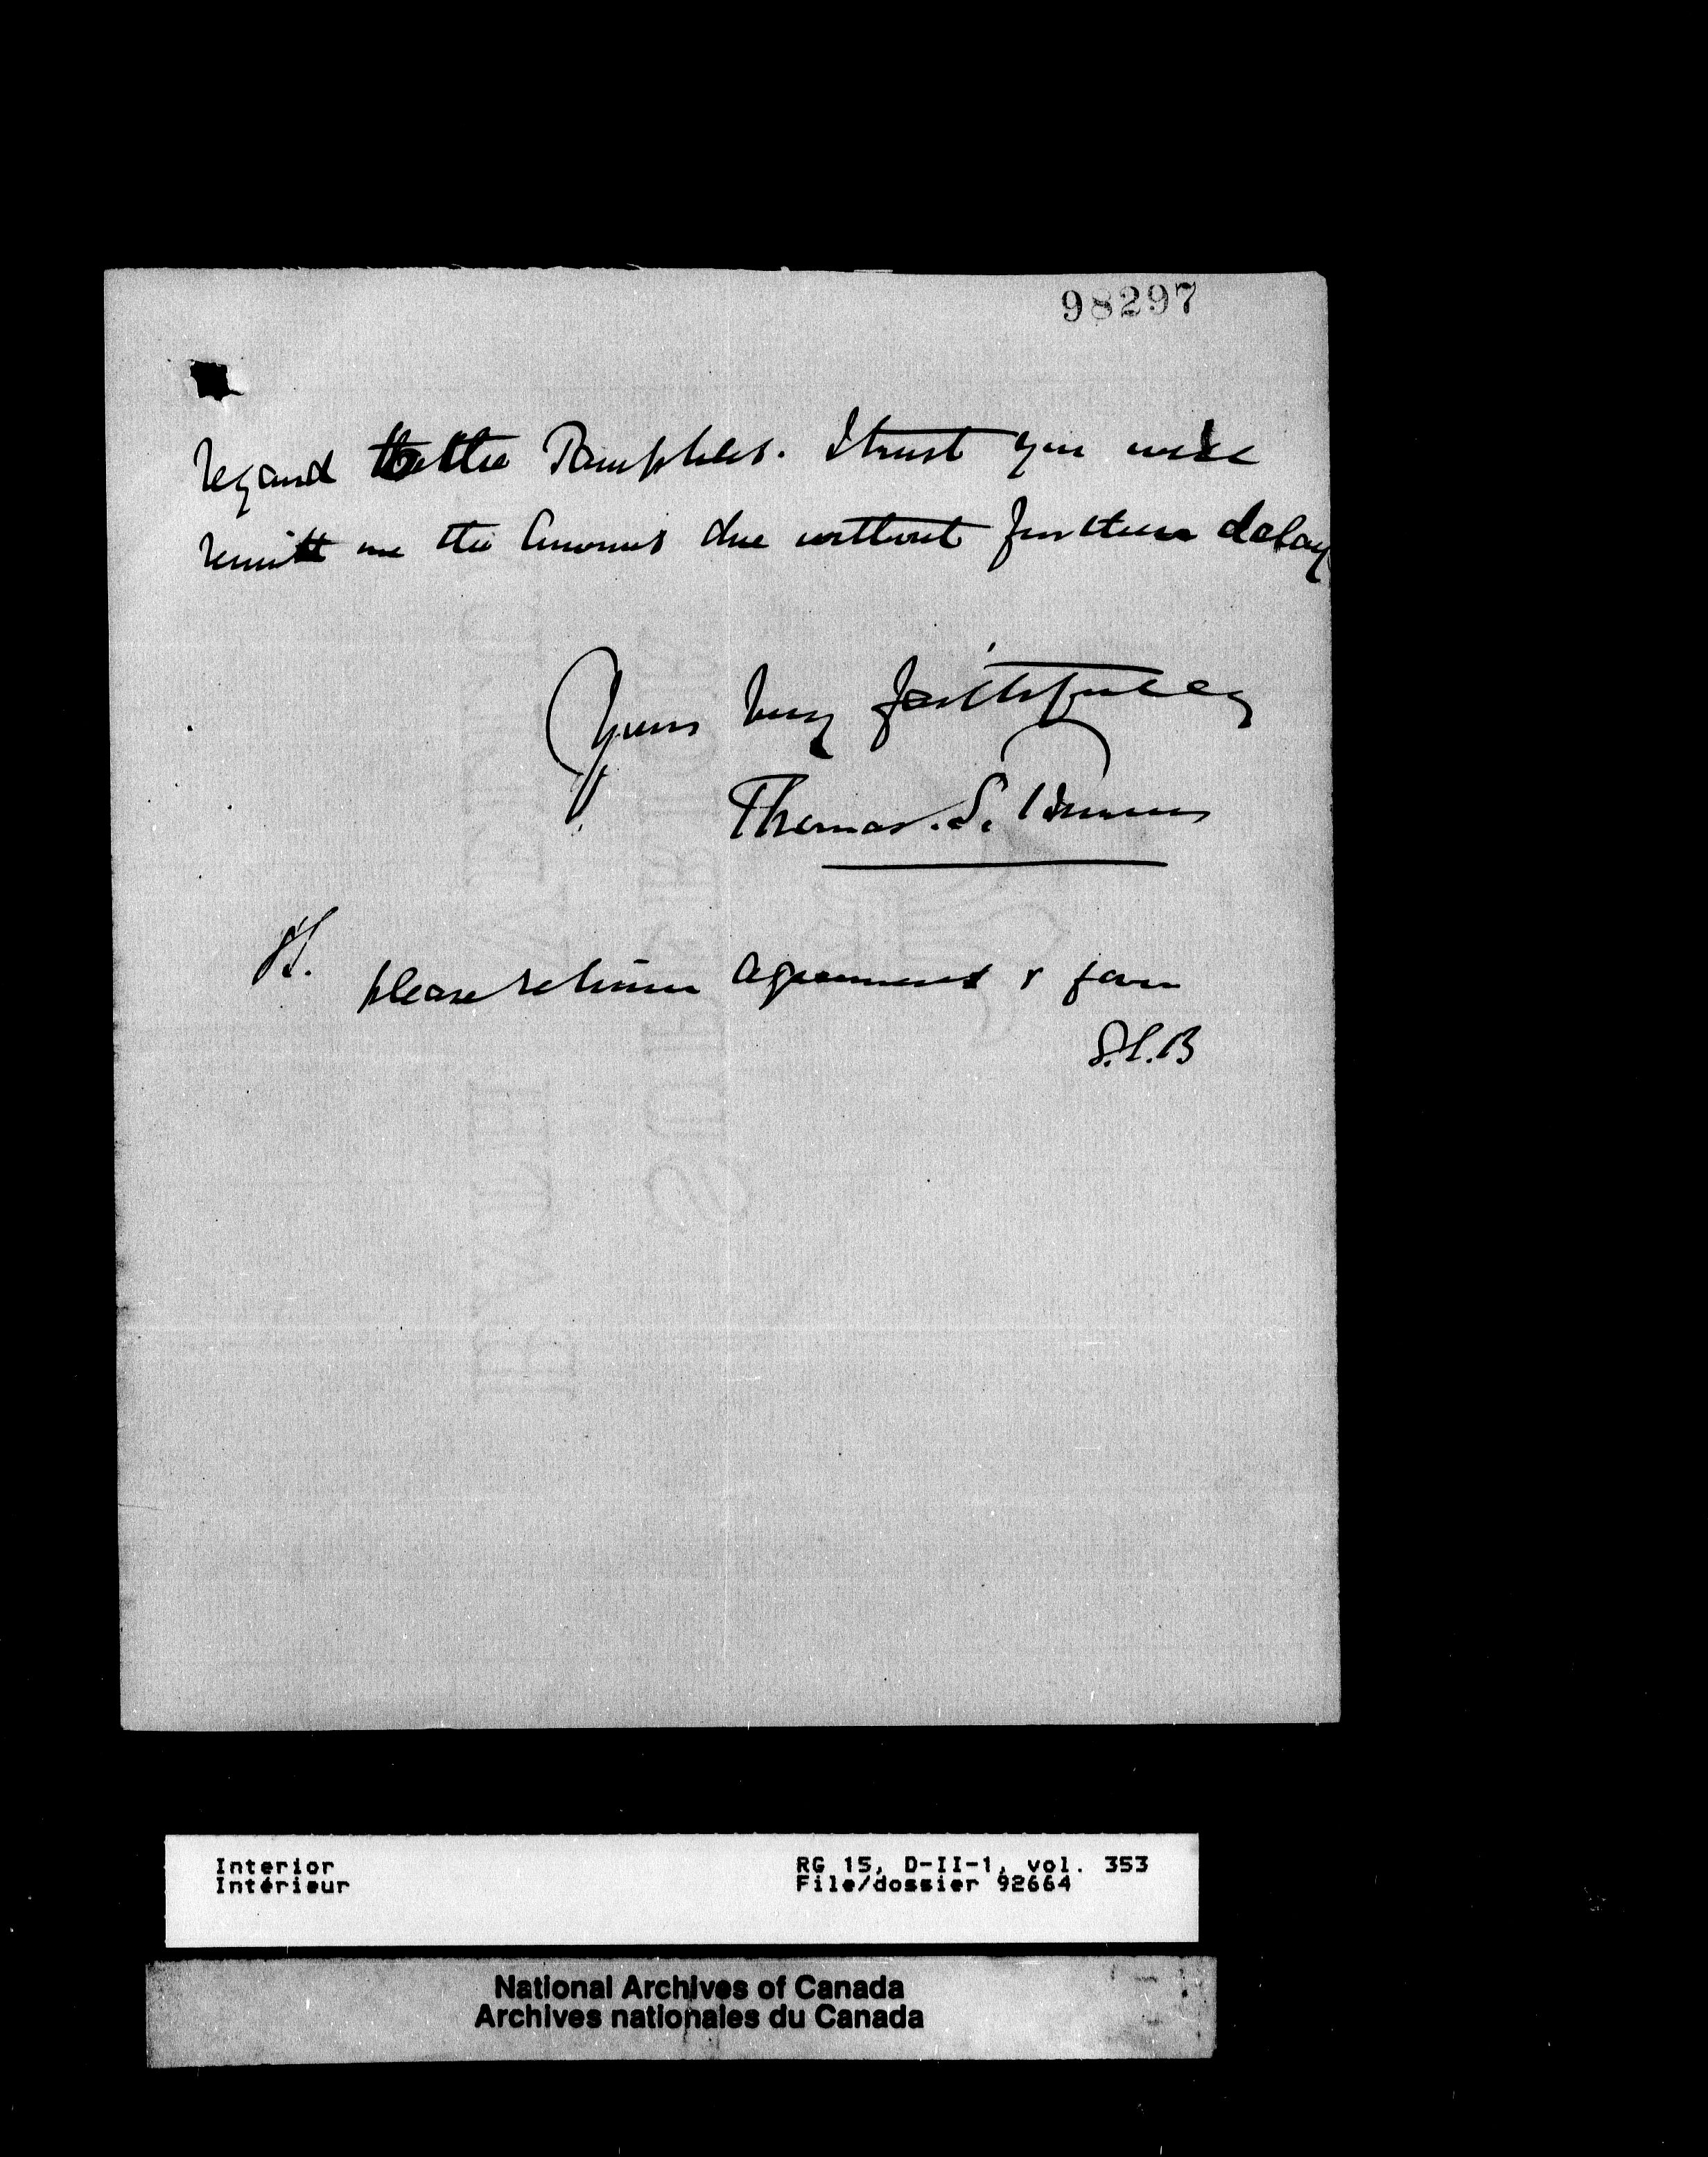 98297
regard to the Pamphlets. I trust you will
remitt me the Amount due without further delay
Yours very faithfully
Thomas. S.
PS.
please return agreement &
S.S.B
Interior
Intérieur
RG 15, D-II-1, vol. 353
File/dossier 92664
National Archives of Canada
Archives nationales du Canada